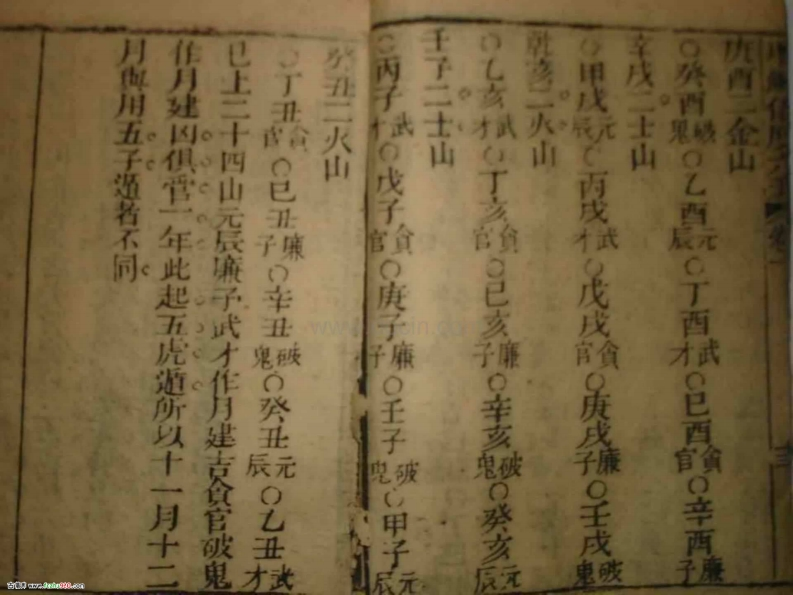 庚酉二金山
○癸酉破鬼○乙酉元辰○丁酉武才○己酉貪官○辛酉廉子
辛戌二土山
○甲戌元辰○丙戌武才○戊戌貪官○庚戌廉子○壬戌破鬼
乾亥二火山
○乙亥武才○丁亥貪官○己亥廉子○辛亥破鬼○癸亥元辰
壬子二土山
○丙子武才○戊子貪官○庚子廉子○壬子破鬼○甲子元辰
癸丑二火山
○丁丑貪官○己丑廉子○辛丑破鬼○癸丑元辰○乙丑武才
已上二十四山元辰廉子武才作月建吉貪官破鬼
作月建凶俱管一年此起五虎遁所以十一月十二
月與用五子遁者不同